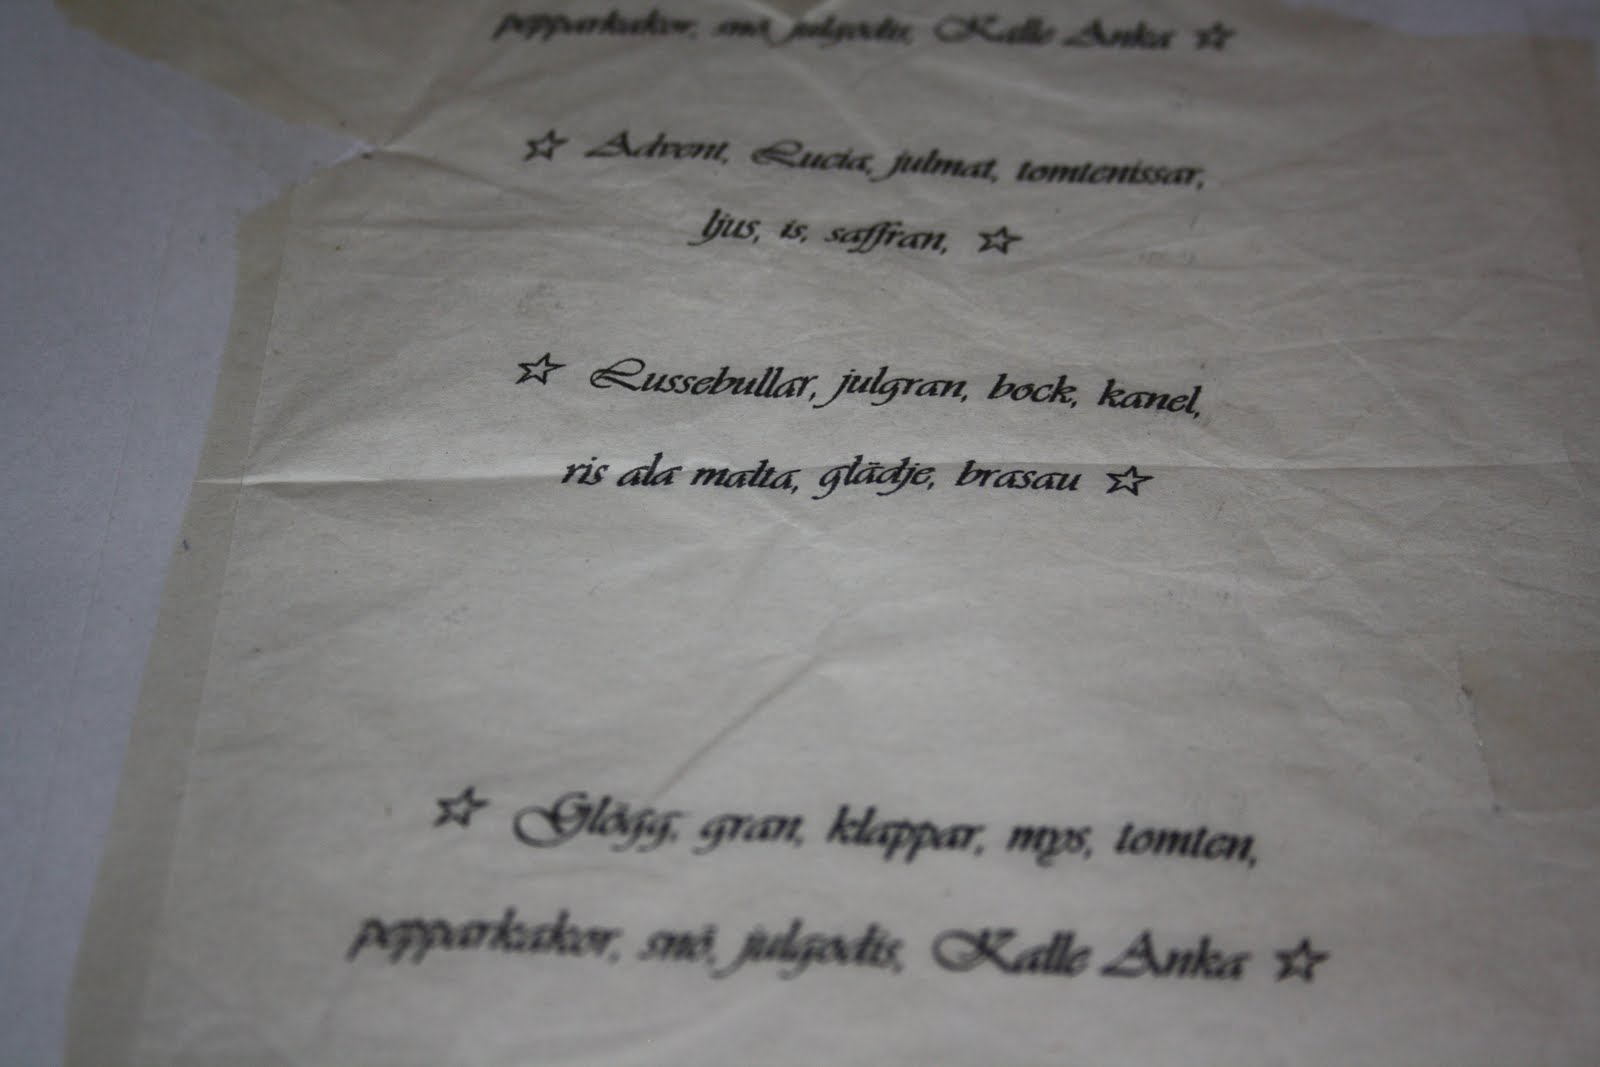 pepparkakor, snö, julgodis, Kalle Anka ☆
☆ Advent, Lucia, julmat, tomtenissar,
ljus, is, saffran, ☆
☆ Lussebullar, julgran, bock, kanel,
ris ala malta, glädje, brasau ☆
☆ Glögg, gran, klappar, mys, tomten,
pepparkakor, snö, julgodis, Kalle Anka ☆